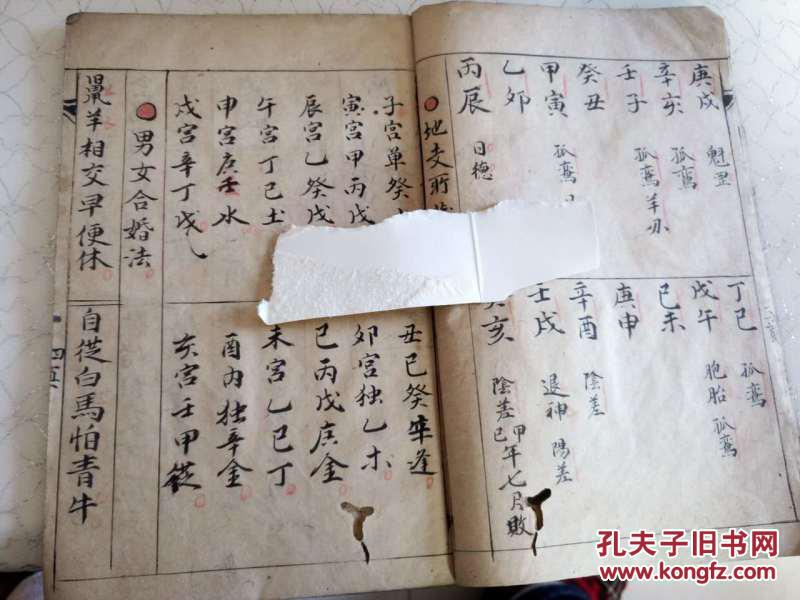 庚戌 魁罡
辛亥 孤鸞
壬子 孤鸞羊刃
癸丑
甲寅 孤鸞
乙卯
丙辰 日德
丁巳 孤鸞
戊午 胞胎 孤鸞
己未
庚申
辛酉 陰差
壬戌 退神 陽差
亥 陰差 甲己年七月敗
地支所
子宫單癸
丑巳癸牢逢
寅宫甲丙戊
卯宫独乙木
辰宫乙癸戊
巳丙戊庚金
午宫丁己土
未宫乙己丁
申宫庚壬水
酉内独辛金
戌宫辛丁戊
亥宫壬甲從
男女合婚法
鼠羊相交早便休
自從白馬怕青牛
四五
孔夫子旧书网
www.kongfz.com